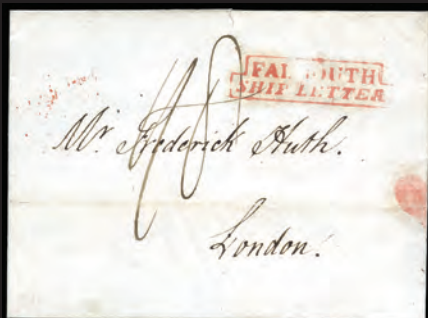 FALMOUTH
SHIP LETTER
Mr. Frederick Huth.
London.